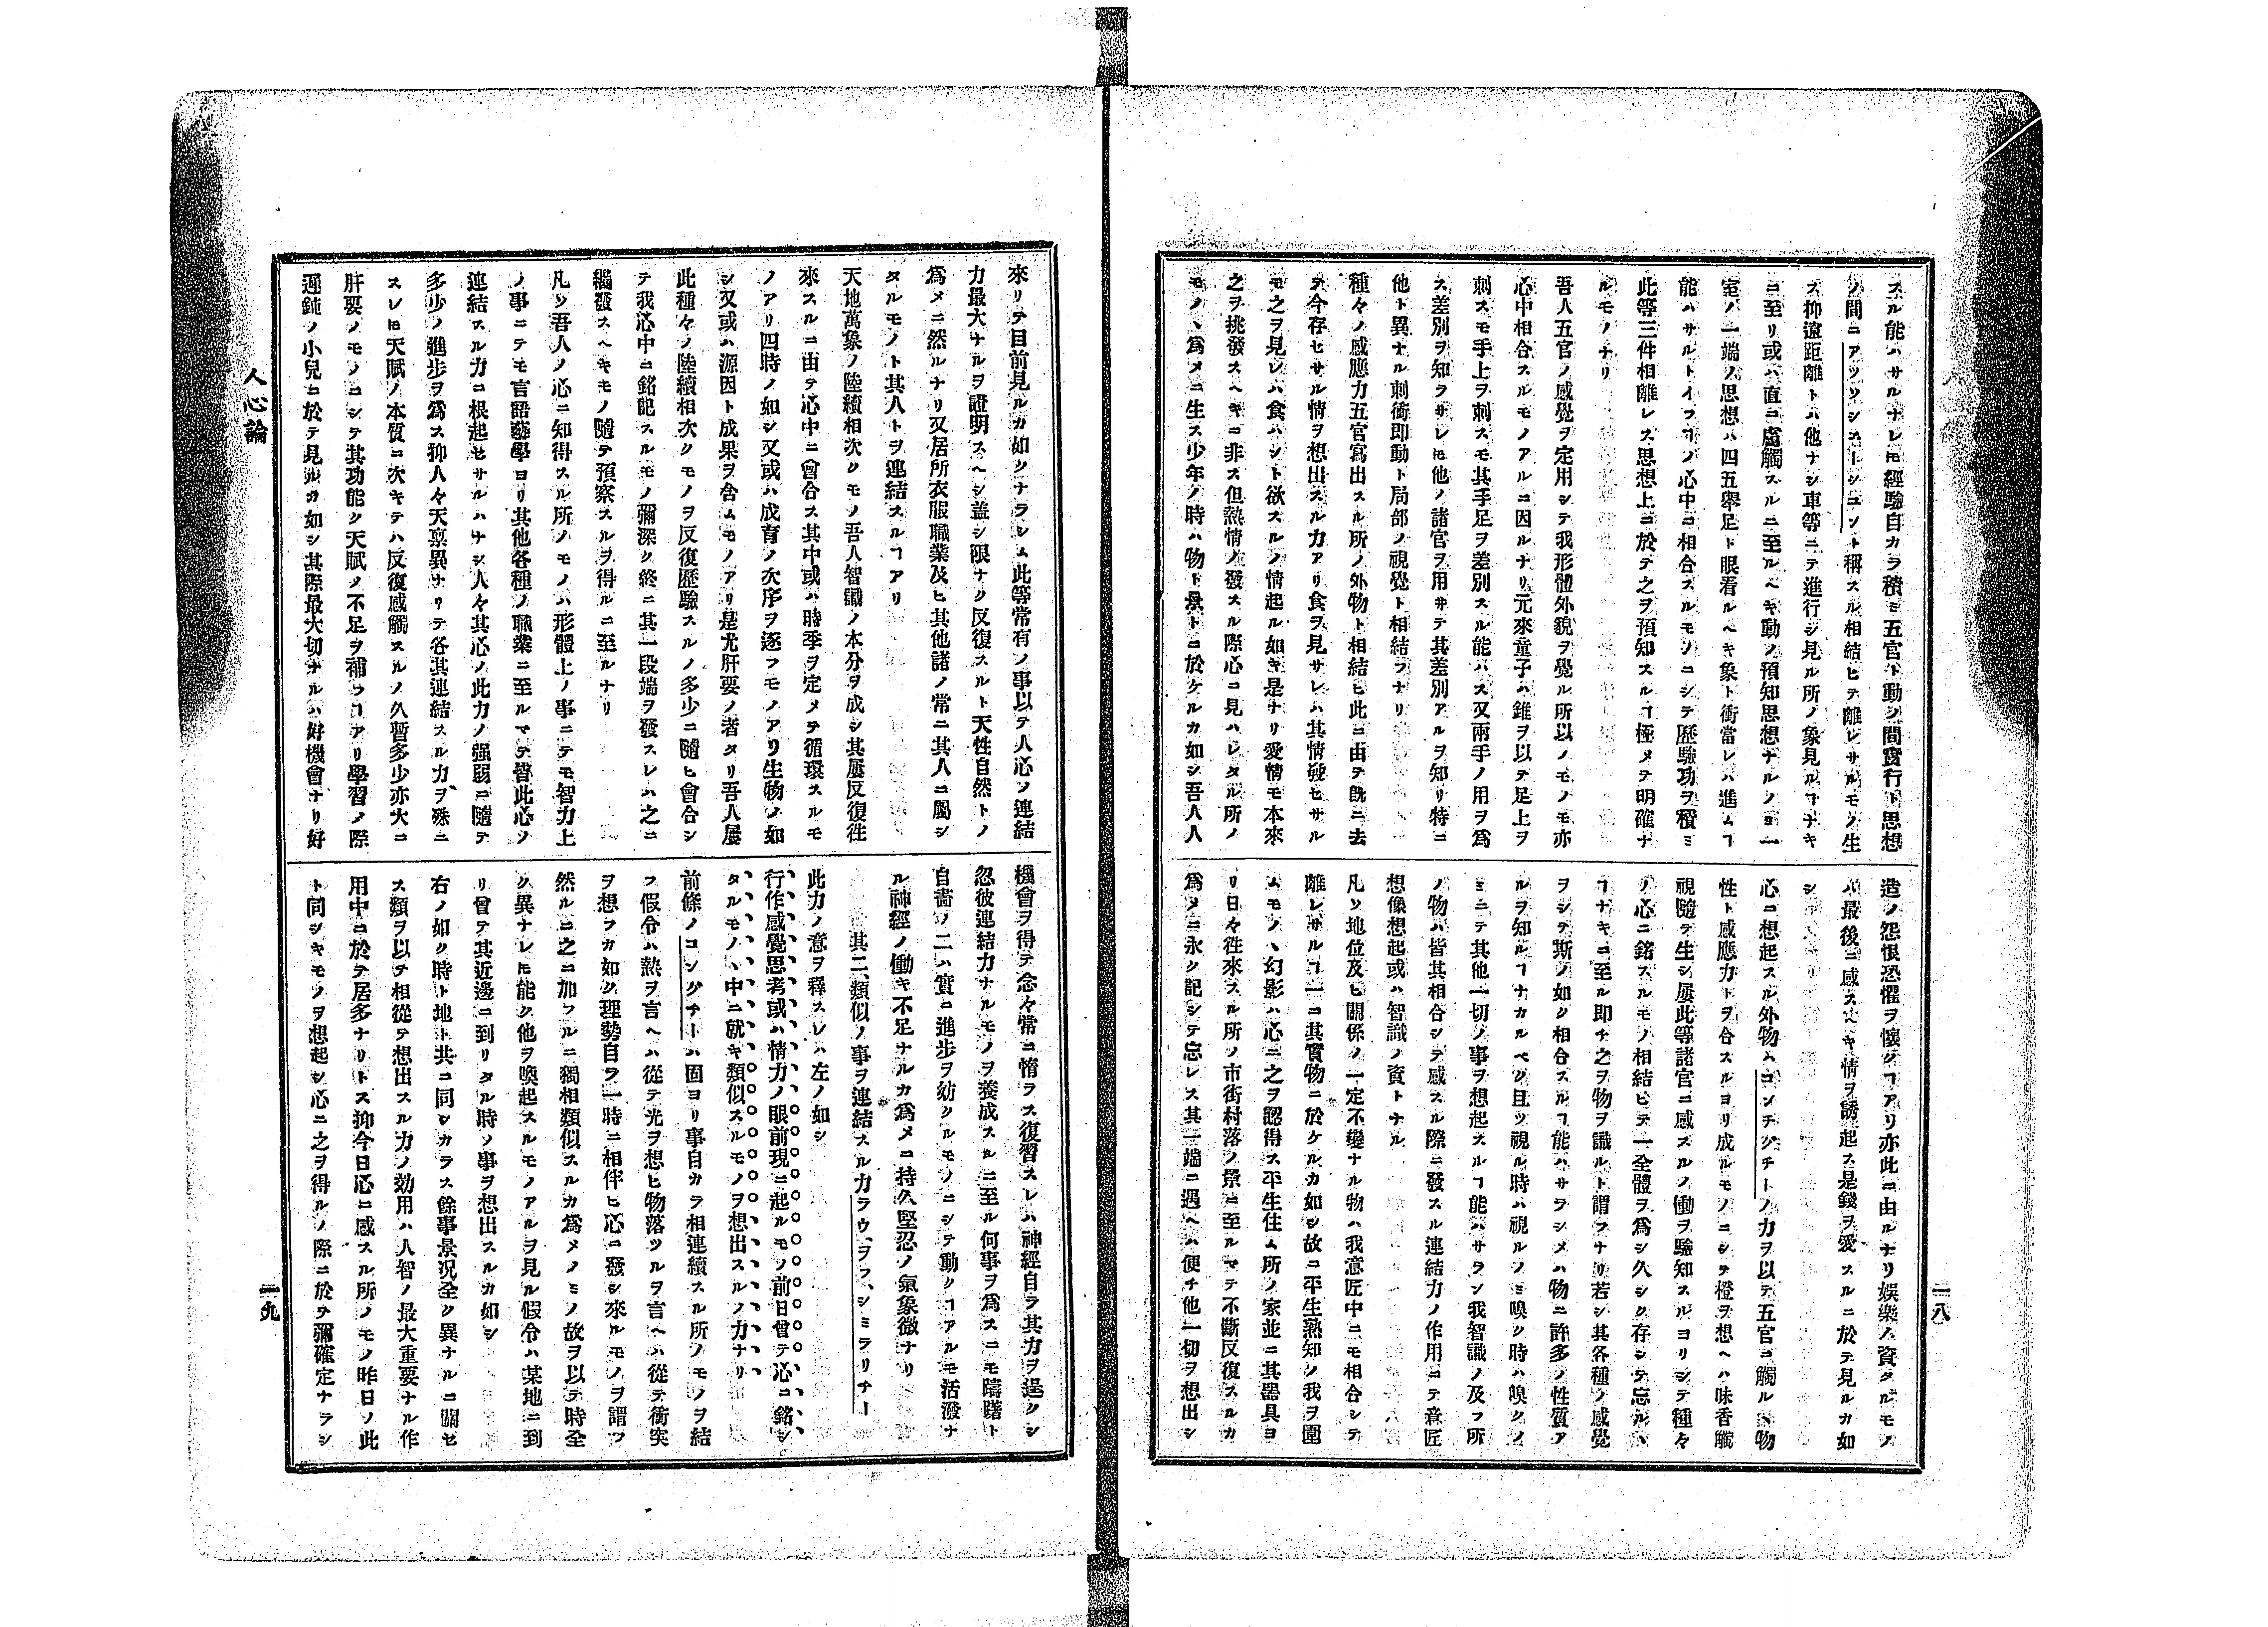 スル能ハサルナレ𪜈經驗自カラ積ミ五官ト動ク間實行ト思想
ノ間ニアソシエーシヨント稱スル相結ヒテ離レサルモノ生
ス抑遠距離トハ他ナシ車等ニテ進行シ見ル所ノ象見ルヿナキ
ニ至リ或ハ直ニ處觸スルニ至ルヘキ動ノ預知思想ナルノミ一
室ノ一端ノ思想ハ四五擧足ト眼看ルヘキ象ト衝當レハ進ムヿ
能ハサルトイフヿノ心中ニ相合スルモノニシテ歷驗功ヲ積ミ
此等三件相離レス思想上ニ於テ之ヲ預知スルヿ極メテ明確ナ
ルモノナリ
吾人五官ノ感覺ヲ定用シテ我形體外貌ヲ覺ル所以ノモノモ亦
心中相合スルモノアルニ因ルナリ元來童子ハ錐ヲ以テ足上ヲ
刺スモ手上ヲ刺スモ其手足ヲ差別スル能ハス又兩手ノ用ヲ爲
ス差別ヲ知ラサレ𪜈他ノ諸官ヲ用井テ其差別アルヲ知リ特ニ
他ト異ナル刺衝即動ト局部ノ視覺ト相結フナリ
種々ノ感應力五官寫出スル所ノ外物ト相結ヒ此ニ由テ既ニ去
テ今存セサル情ヲ想出スル力アリ食ヲ見サレハ其情發セサル
モ之ヲ見レハ食ハント欲スルノ情起ル如キ是ナリ愛情モ本來
之ヲ挑發スヘキニ非ス但熱情ノ發スル際心ニ見ハレタル所ノ
モノヽ爲メニ生ス少年ノ時ハ物ト景トニ於ケルカ如シ吾人人
造ノ怨恨恐懼ヲ懷クヿアリ亦此ニ由ルナリ娛樂ノ資タルモノ
ハ最後ニ感スヘキ情ヲ誘起ス是錢ヲ愛スルニ於テ見ルカ如
シ
心ニ想起スル外物ハコンチグチートノ力ヲ以テ五官ニ觸ルヽ物
性ト感應力トヲ合スルヨリ成ルモノニシテ橙ヲ想ヘハ味香觸
視隨テ生シ屢此等諸官ニ感スルノ働ヲ驗知スルヨリシテ種々
ノ心ニ銘スルモノ相結ヒテ一全體ヲ爲シ久シク存シテ忘ルヽ
ヿナキニ至ル即チ之ヲ物ヲ識ルト謂フナリ若シ其各種ノ感覺
ヲシテ斯ノ如ク相合スルヿ能ハサラシメハ物ニ許多ノ性質ア
ルヲ知ルヿナカルヘク且ツ視ル時ハ視ルノミ嗅ク時ハ嗅クノ
ミニテ其他一切ノ事ヲ想起スルヿ能ハサラン我智識ノ及フ所
ノ物ハ皆其相合シテ感スル際ニ發スル連結力ノ作用ニテ意匠
想像想起或ハ智識ノ資トナル
凡ソ地位及ヒ關係ノ一定不變ナル物ハ我意匠中ニモ相合シテ
離レサルヿ一ニ其實物ニ於ケルカ如シ故ニ平生熟知ノ我ヲ圍
ムモノヽ幻影ハ心ニ之ヲ認得ス平生住ム所ノ家並ニ其器具ヨ
リ日々徃來スル所ノ市街村落ノ景ニ至ルマテ不斷反復スルカ
爲メニ永ク記シテ忘レス其一端ニ遇ヘハ便チ他一切ヲ想出シ
一八
來リテ目前見ルカ如クナラシム此等常有ノ事以テ人心ノ連結
力最大ナルヲ證明スヘシ蓋シ限ナク反復スルト天性自然トノ
爲メニ然ルナリ又居所衣服職業及ヒ其他諸ノ常ニ其人ニ屬シ
タルモノト其人トヲ連結スルヿアリ
天地萬象ノ陸續相次クモノ吾人智識ノ本分ヲ成シ其屢反復徃
來スルニ由テ心中ニ會合ス其中或ハ時季ヲ定メテ循環スルモ
ノアリ四時ノ如シ又或ハ成育ノ次序ヲ逐フモノアリ生物ノ如
シ又或ハ源因ト成果ヲ含ムモノアリ是尤肝要ノ者タリ吾人屢
此種々ノ陸續相次クモノヲ反復歷驗スルノ多少ニ隨ヒ會合シ
テ我心中ニ銘記スルモノ彌深ク終ニ其一段端ヲ發スレハ之ニ
繼發スヘキモノ隨テ預察スルヲ得ルニ至ルナリ
凡ソ吾人ノ心ニ知得スル所ノモノハ形體上ノ事ニテモ智力上
ノ事ニテモ言語藝學ヨリ其他各種ノ職業ニ至ルマテ皆此心ノ
連結スル力ニ根起セサルハナシ人々其心ノ此力ノ强弱ニ隨テ
多少ノ進步ヲ爲ス抑人々天禀異サリテ各其連結スル力ヲ殊ニ
スレ𪜈天賦ノ本質ニ次キテハ反復感觸スルノ久暫多少亦大ニ
肝要ノモノニシテ其功能ク天賦ノ不足ヲ補フヿアリ學習ノ際
遲鈍ノ小兒ニ於テ見ルカ如シ其際最大切ナルハ好機會ナリ好
機會ヲ得テ念々常ニ惰ラス復習スレハ神經自ラ其力ヲ逞クシ
忽彼連結力ナルモノヲ養成スルニ至ル何事ヲ爲スニモ躊躇ト
自嗇ノ二ハ實ニ進步ヲ妨クルモノニシテ動クヿアルモ活潑ナ
ル神經ノ働キ不足ナルカ爲メニ持久堅忍ノ氣象微ナリ
其二、類似ノ事ヲ連結スル力ラウ、ヲフ、シミラリチー
此力ノ意ヲ釋スレハ左ノ如シ
行作感覺思考或ハ情力ノ眼前現ニ起ルモノ前日曾テ心ニ銘シ
タルモノヽ中ニ就キ類似スルモノヲ想出スルノ力ナリ
前條ノコンジチートハ固ヨリ事自カラ相連續スル所ノモノヲ結
フ假令ハ熱ヲ言ヘハ從テ光ヲ想ヒ物落ツルヲ言ヘハ從テ衝突
ヲ想フカ如ク理勢自ラ一時ニ相伴ヒ心ニ發シ來ルモノヲ謂フ
然ルニ之ニ加フルニ獨相類似スルカ爲メノミノ故ヲ以テ時全
ク異ナレ𪜈能ク他ヲ喚起スルモノアルヲ見ル假令ハ某地ニ到
リ曾テ其近邊ニ到リタル時ノ事ヲ想出スルカ如シ
右ノ如ク時ト地ト共ニ同シカラス餘事景况全ク異ナルニ關セ
ス類ヲ以テ相從テ想出スル力ノ効用ハ人智ノ最大重要ナル作
用中ニ於テ居多ナリトス抑今日心ニ感スル所ノモノ昨日ノ此
ト同シキモノヲ想起シ心ニ之ヲ得ルノ際ニ於テ彌確定ナラシ
人心論
一九